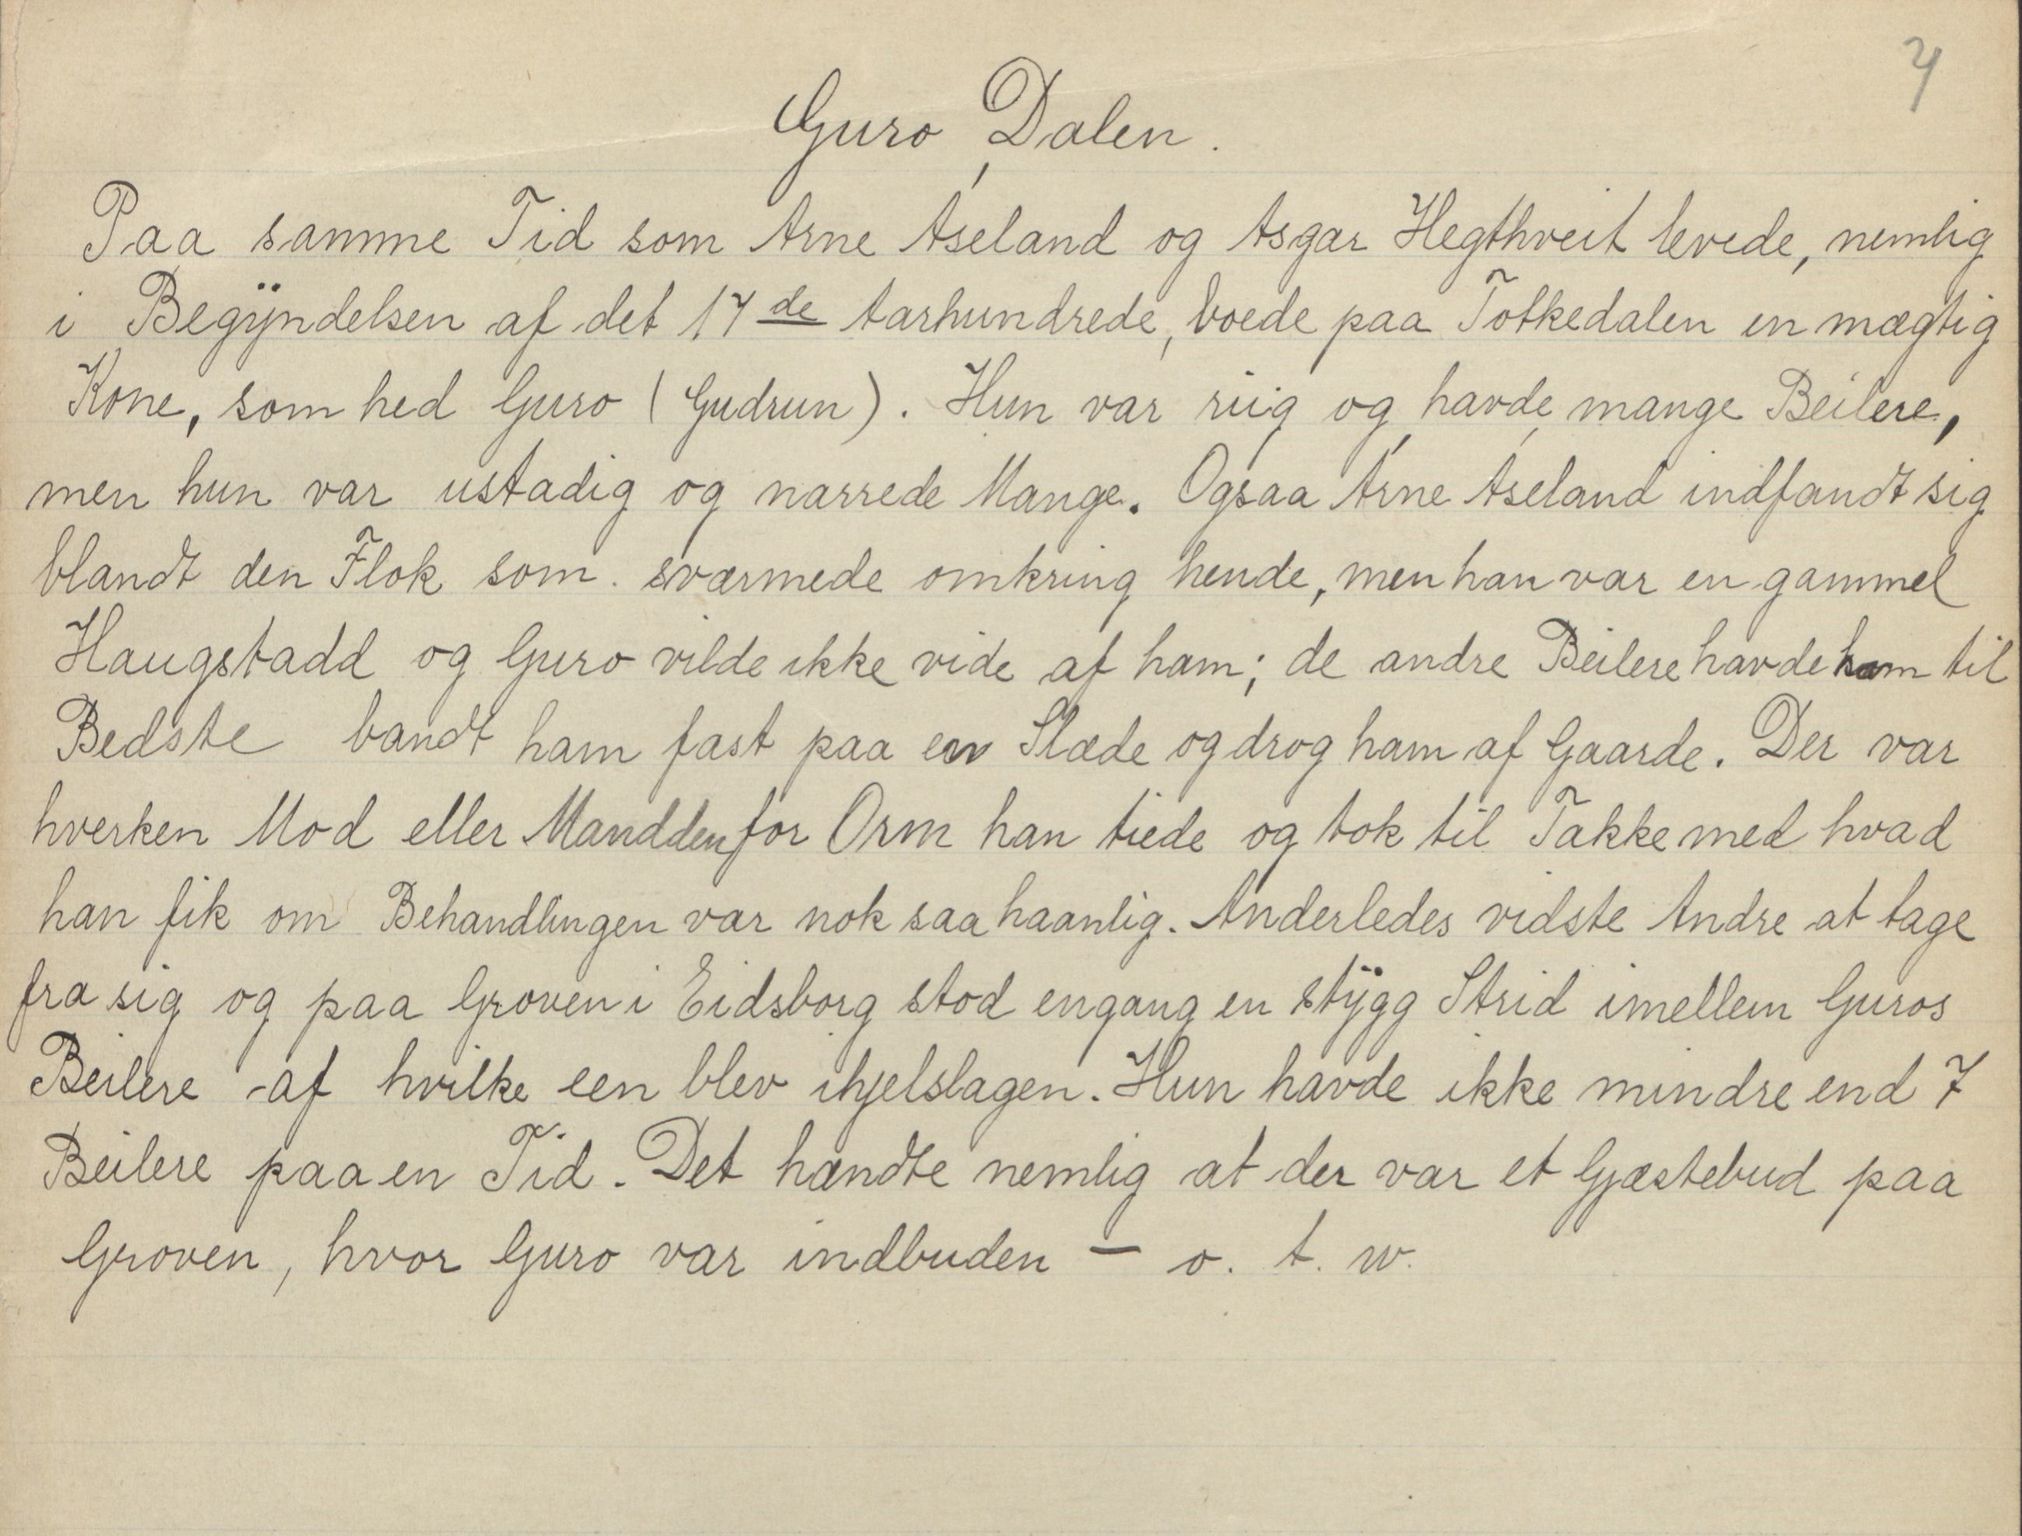 7
Guro Dalen.
Paa samme Tid som Arne Aseland og Asgar Hegthveit levede, nemlig
i Begÿndelsen af det 17de Aarhundrede, boede paa Totkedalen en mægtig
Kone, som hed Guro (Gudrun). Hun var riig og havde mange Beilere,
men hun var ustadig og narrede Mange. Ogsaa Arne Aseland indfandt sig
blandt den Flok som. sværmede omkring hende, men han var en gammel
Haugstadd og Guro vilde ikke vide af ham; de andre Beilere havde ham til
Bedste bandt ham fast paa en Slæde og drog ham af Gaarde. Der var
hverken Mod eller Mandden for Orm han tiede og tok til Takke med hvad
han fik om Behandlingen var nok saa haanlig. Anderledes vidste Andre at tage
fra sig og paa Groven i Eidsborg stod engang en stÿgg Strid imellem Guros
Beilere af hvilke een blev ihjelslagen. Hun havde ikke mindre end 7
Beilere paa en Tid. Det hændte nemlig at der var et Gjæstebud paa
Groven, hvor Guro var indbuden - o. t. w.